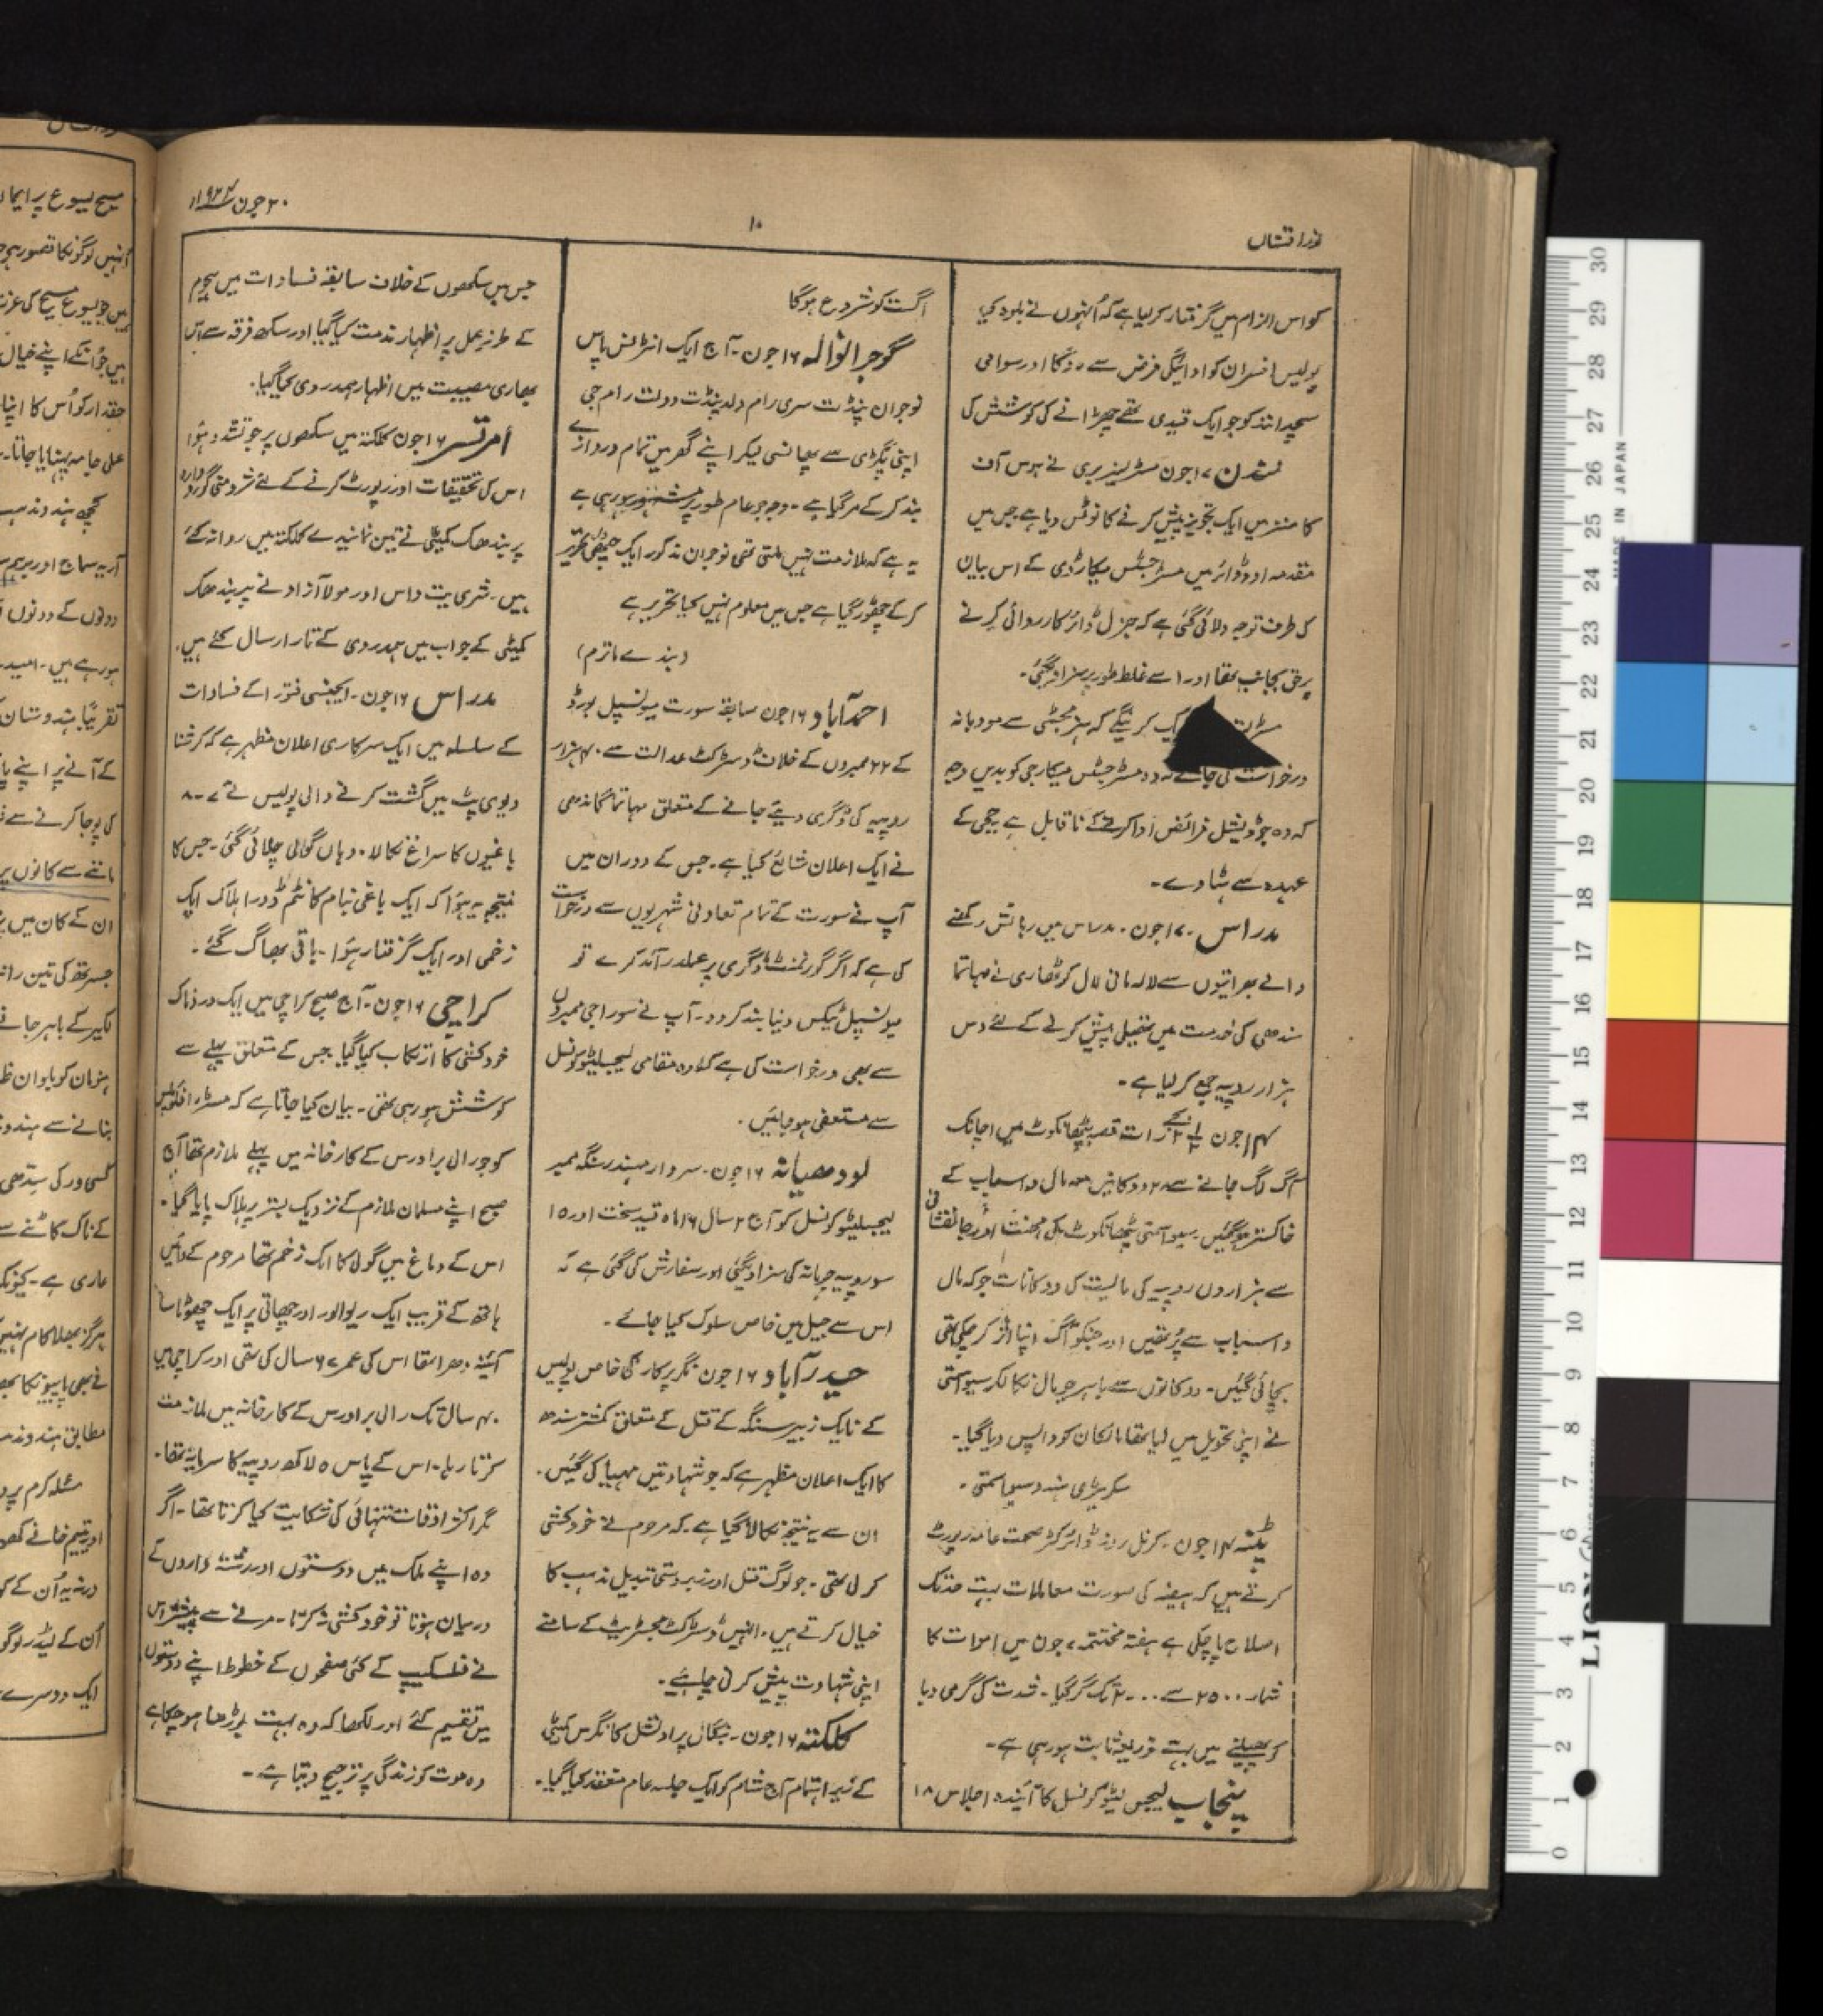 نور افشاں
۱۰
۲۰ جون ۱۹۲۴ء
کو اس الزام میں گرفتار کر لیا ہے کہ اُنہوں نے بلوہ کیا
پولیس افسران کو ادائیگی فرض سے روکا اور سوامی
سچدانند کو جو ایک قیدی تھے چھڑانے کی کوشش کی
لندن ۱۷ جون مسٹر لینزبری نے ہوس آف
کامنز میں ایک تجویز پیش کرنے کا نوٹس دیا ہے جس میں
مقدمہ اوڈوائر میں مسٹر جسٹس میکارڈی کے اس بیان
کی طرف توجہ دلائی گئی ہے کہ جنرل ڈائر کارروائی کرنے
برحق بجانب تھا اور اسے غلط طور پر سزا دیگئی۔
کریں گے کہ ہز مجسٹی سے مودبانہ
درخواست کی جائے کہ وہ مسٹر جسٹس میکارجی کو بدیں وجہ
کہ وہ جوڈیشل فرائض ادا کرنے کے ناقابل ہے ججی کے
عہدہ سے ہٹا دے۔
مدراس ۱۷ جون۔ مدراس میں رہائش رکھنے
والے گجراتیوں سے لالہ مانی لال کوٹھاری نے مہاتما
گاندھی کی خدمت میں تھیلی پیش کرنے کے لئے دس
ہزار روپیہ جمع کر لیا ہے۔
۱۴ جون ½۲ بجے رات قصبہ پٹھانکوٹ میں اچانک
آگ لگ جانے سے ۲۸ دوکانیں معہ مال و اسباب کے
خاکستر ہو گئیں۔ سیوا سمتی پٹھانکوٹ کی محنت اور جانفشانی
سے ہزاروں روپیہ کی مالیت کی دوکانات جو کہ مال
و اسباب سے پُر تھیں اور جنکو آگ اپنا اثر کر چکی تھی
بچائی گئیں۔ دوکانوں سے باہر جو مال نکالکر سیوا سمتی
نے اپنی تحویل میں لیا تھا مالکان کو واپس دیا گیا۔
سکریٹری ہندو سیوا سمتی۔
پٹنہ ۱۴ جون۔ کرنل روز ڈائرکٹر صحت عامہ رپورٹ
کرتے ہیں کہ ہیضہ کی صورت معاملات بہت حد تک
اصلاح پا چکی ہے ہفتہ مختتمہ ۷ جون میں اموات کا
شمار ۲۵۰۰ سے ۲۰۰۰ تک گر گیا۔ شدت کی گرمی وبا
کو پھیلنے میں بہت ذریعہ ثابت ہو رہی ہے۔
پنجاب لیجس لیٹو کونسل کا آئندہ اجلاس ۱۸
اگست کو شروع ہوگا
گوجرانوالہ ۱۶ جون۔ آج ایک انٹرنس پاس
نوجوان پنڈت سری رام ولد پنڈت دولت رام جی
اپنی پگڑی سے پھانسی لیکر اپنے گھر میں تمام دروازے
بند کر کے مر گیا ہے۔ وجہ جو عام طور پر مشہور ہو رہی ہے
یہ ہے کہ ملازمت نہیں ملتی تھی نوجوان مذکور ایک چٹھی تحریر
کر کے چھوڑ گیا ہے جس میں معلوم نہیں کیا تحریر ہے
(بندے ماترم)
احمدآباد ۱۶ جون سابقہ سورت میونسپل بورڈ
کے ۲۲ ممبروں کے خلاف ڈسٹرکٹ عدالت سے ۴۰ ہزار
روپیہ کی ڈگری دیئے جانے کے متعلق مہاتما گاندھی
نے ایک اعلان شائع کیا ہے۔ جس کے دوران میں
آپ نے سورت کے تمام تعاونی شہریوں سے درخواست
کی ہے کہ اگر گورنمنٹ ڈگری پر عملدرآمد کرے تو
میونسپل ٹیکس دینا بند کر دو۔ آپ نے سوراجی ممبروں
سے بھی درخواست کی ہے کہ وہ مقامی لیجسلیٹو کونسل
سے مستعفی ہو جائیں۔
لودھیانہ ۱۶ جون۔ سردار مہندر سنگھ ممبر
لیجسلیٹو کونسل کو آج ۲ سال ۶ ماہ قید سخت اور ۱۵
سو روپیہ جرمانہ کی سزا دیگئی اور سفارش کی گئی ہے کہ
اس سے جیل میں خاص سلوک کیا جائے۔
حیدرآباد ۱۶ جون نگر پرکار کی خاص پولیس
کے نایک زبیر سنگھ کے قتل کے متعلق کمشنر سندھ
کا ایک اعلان مظہر ہے کہ جو شہادتیں مہیا کی گئیں۔
ان سے یہ نتیجہ نکالا گیا ہے۔ کہ مرحوم نے خودکشی
کر لی تھی۔ جو لوگ قتل اور زبردستی تبدیل مذہب کا
خیال کرتے ہیں۔ انہیں ڈسٹرکٹ مجسٹریٹ کے سامنے
اپنی شہادت پیش کرنی چاہئے۔
کلکتہ ۱۶ جون۔ بنگال پراونشل کانگرس کمیٹی
کے زیر اہتمام آج شام کو ایک جلسہ عام منعقد کیا گیا۔
جس میں سکھوں کے خلاف سابقہ فسادات میں ہجوم
کے طرز عمل پر اظہار ندمت کیا گیا اور سکھ فرقہ سے اس
بھاری مصیبت میں اظہار ہمدردی کیا گیا۔
امرتسر ۱۶ جون کلکتہ میں سکھوں پر جو تشدد ہُوا
اس کی تحقیقات اور رپورٹ کرنے کے لئے شرومنی گوردوارہ
پربندھک کمیٹی نے تین نمائیندے کلکتہ میں روانہ کئے
ہیں۔ شری یت داس اور مولانا آزاد نے پربندھک
کمیٹی کے جواب میں ہمدردی کے تار ارسال کئے ہیں۔
مدراس ۱۶ جون۔ ایجنسی فتورا کے فسادات
کے سلسلہ میں ایک سرکاری اعلان مظہر ہے کہ کرشنا
دیوی پٹ میں گشت کرنے والی پولیس نے ۷-۸
باغیوں کا سراغ نکالا۔ وہاں گولی چلائی گئی۔ جس کا
نتیجہ یہ ہُوا کہ ایک باغی بنام کانٹم ڈورا ہلاک ایک
زخمی اور ایک گرفتار ہُوا۔ باقی بھاگ گئے۔
کراچی ۱۶ جون۔ آج صبح کراچی میں ایک دردناک
خودکشی کا ارتکاب کیا گیا جس کے متعلق پہلے سے
کوشش ہو رہی تھی۔ بیان کیا جاتا ہے کہ مسٹر
کو جو رالی برادرس کے کارخانہ میں پہلے ملازم تھا آج
صبح اپنے مسلمان ملازم کے نزدیک بستر پر ہلاک پایا گیا۔
اس کے دماغ میں گولی کا ایک زخم تھا مرحوم کے دائیں
ہاتھ کے قریب ایک ریوالور اور چھاتی پر ایک چھوٹا سا
آئینہ دھرا تھا اس کی عمر ۶۷ سال کی تھی اور کراچی میں
۴۰ سال تک رالی برادرس کے کارخانہ میں ملازمت
کرتا رہا۔ اس کے پاس ۵ لاکھ روپیہ کا سرمایہ تھا۔
مگر اکثر اوقات تنہائی کی شکایت کیا کرتا تھا۔ اگر
وہ اپنے ملک میں دوستوں اور رشتہ داروں کے
درمیان ہوتا تو خودکشی نہ کرتا۔ مرنے سے پیشتر اس
نے فلسکیپ کے کئی صفحوں کے خطوط اپنے دوستوں
میں تقسیم کئے اور لکھا کہ وہ بہت بوڑھا ہو چکا ہے
وہ موت کو زندگی پر ترجیح دیتا ہے۔
MADE IN JAPAN
LION
0 1 2 3 4 5 6 7 8 9 10 11 12 13 14 15 16 17 18 19 20 21 22 23 24 25 26 27 28 29 30